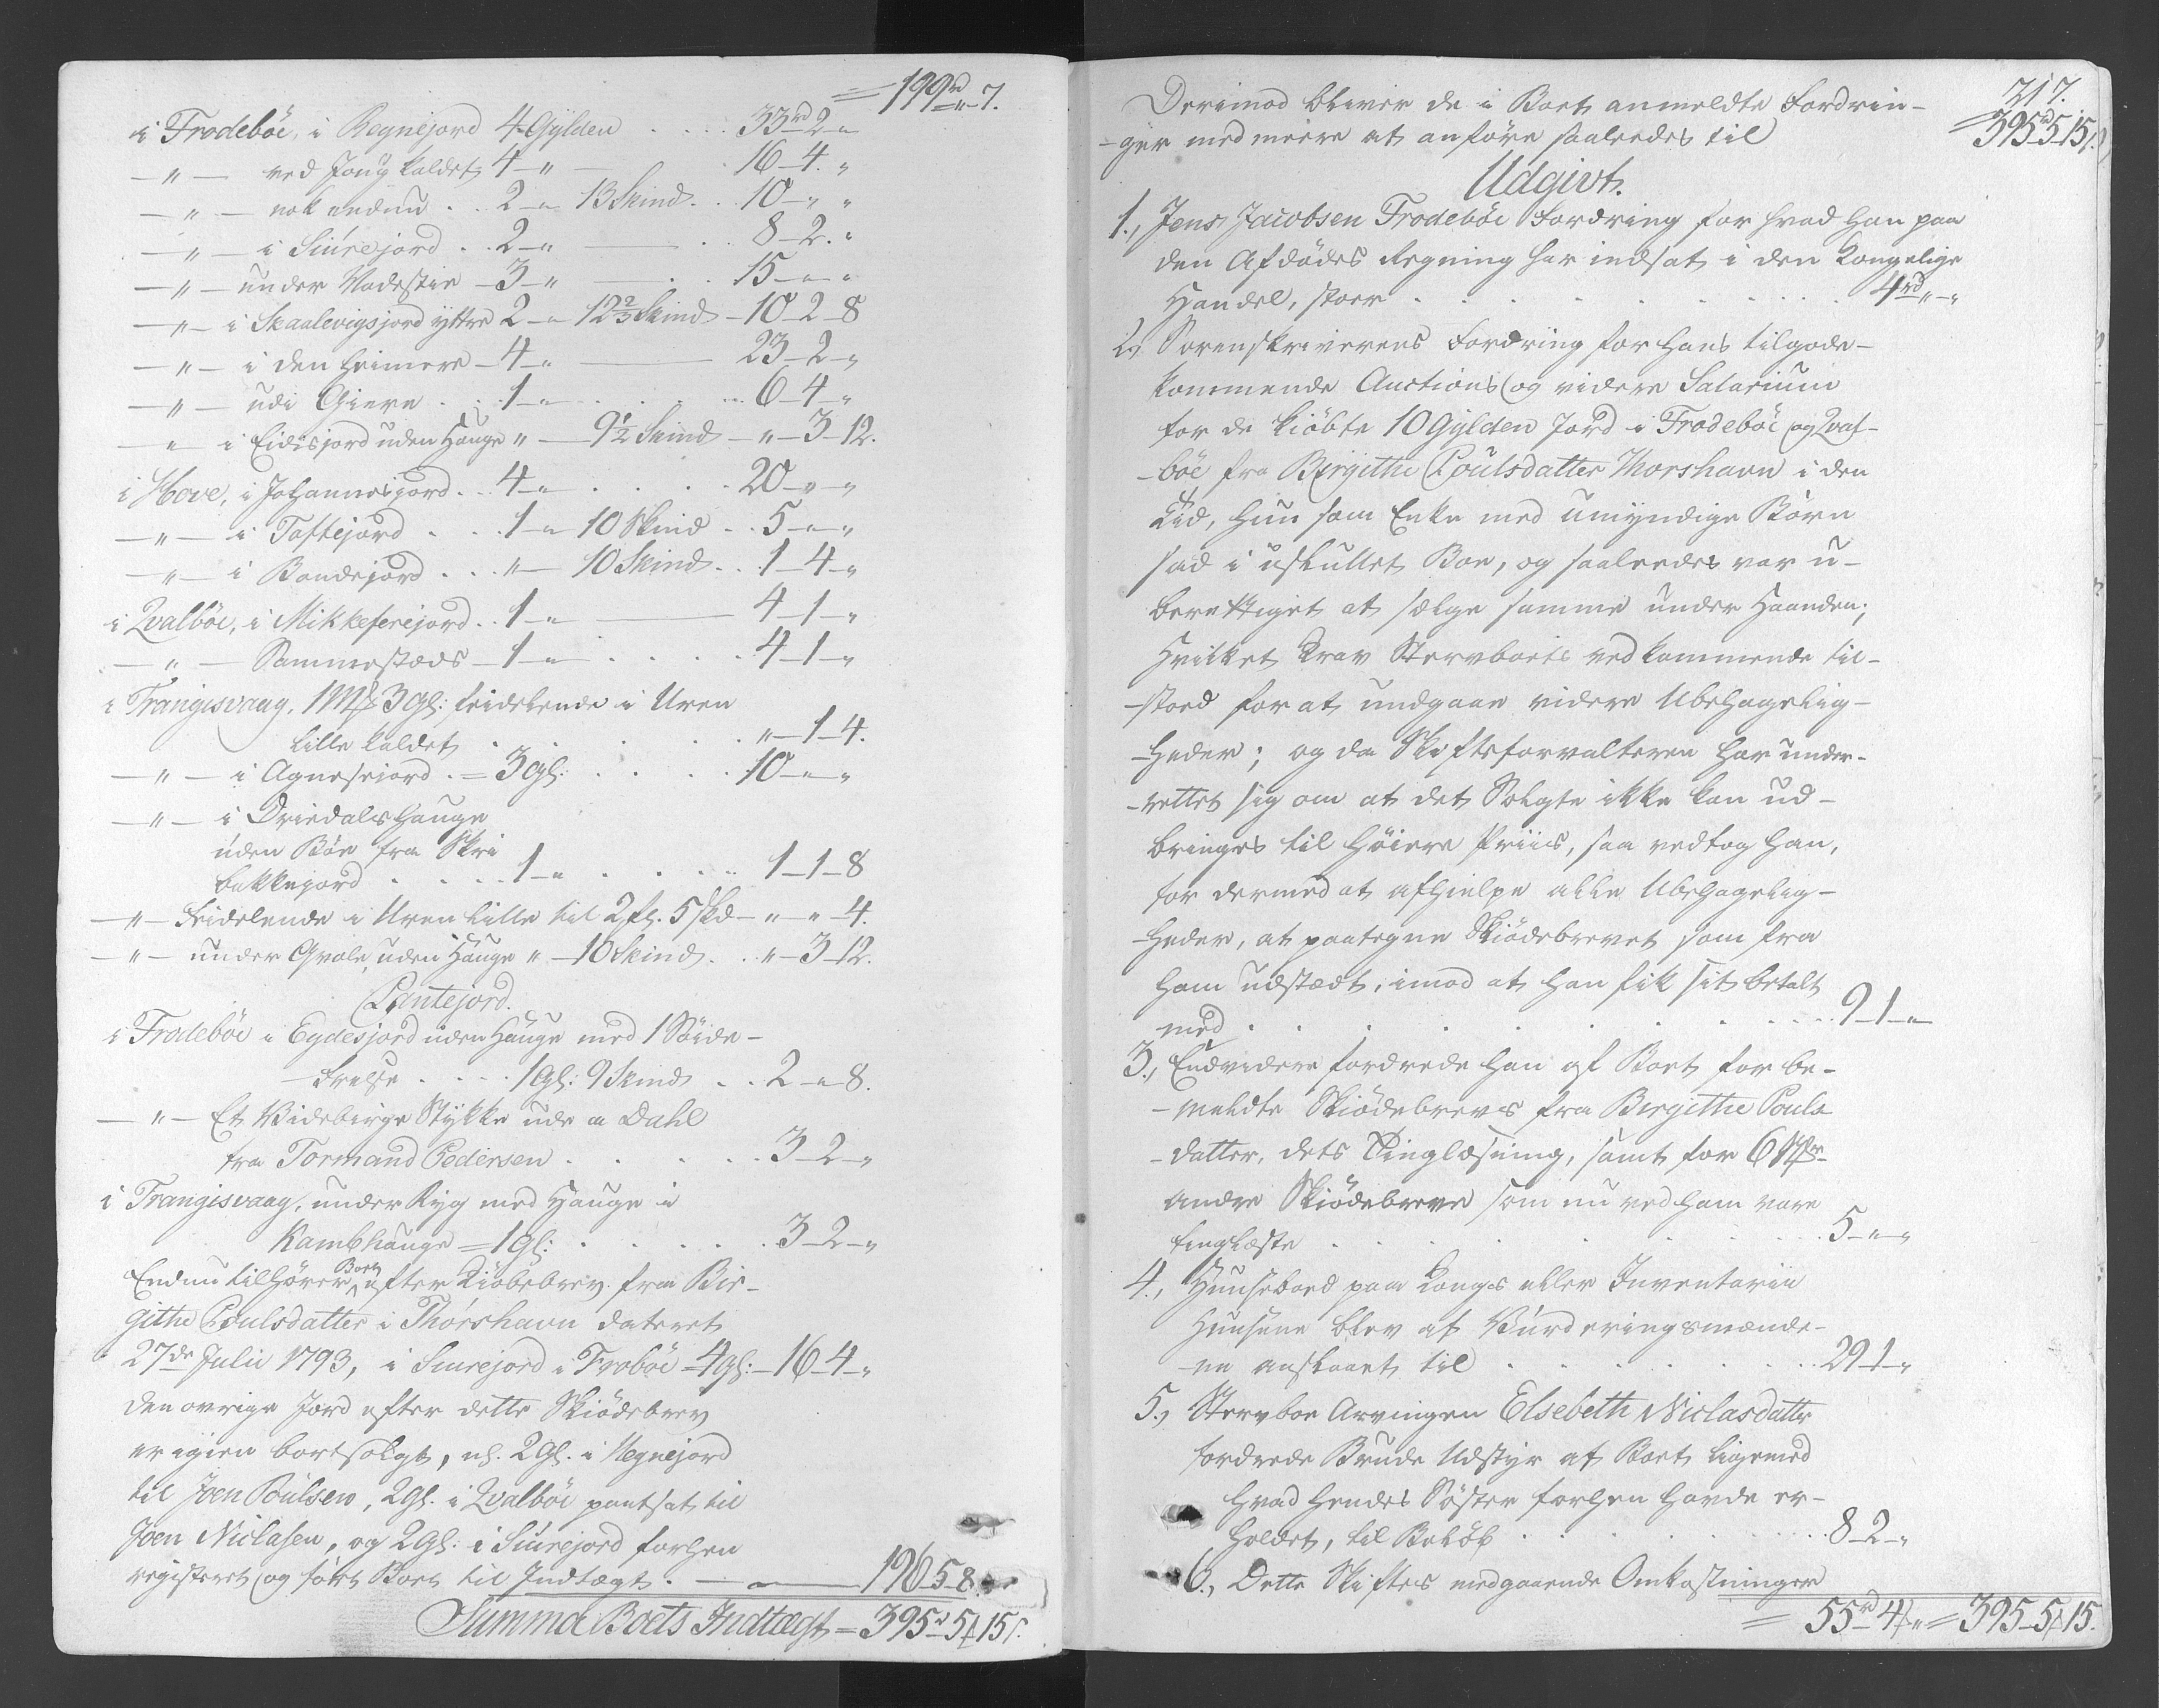 = 199rd „ 7.
i Frodebøe, i Regnejord 4 Gylden . . . 33rd 2 „
— „ — ved Jong kaldet 4 „ — 16 – 4 . „
— „ — nok endnu . . 2 „ 13 Skind . . 10 – „ „
— „ — i Siúrejord . . 2 – „ — . . 8 – 2 . „
— „ — under Vadestie – 3 – „ — . . 15 – „ „
— „ — i Skaalevigsjord yttre 2 – „ 12 2/3 Skind – 10 – 2 – 8
— „ — i den heimere – 4 – „ — 23 – 2 – „
— „ — udi Gieere . . 1 – „ . . . 6 – 4 – „
— „ — i Eidisjord uden Hauge „ – 9 1/2 Skind – „ – 3 – 12.
i Hove, i Johannesjord . . 4 – „ . . . 20 – „ – „
— „ — i Toftejord . . . 1 – „ 10 Skind . . 5 – „ – „
— „ — i Bondejord . . . „ – 10 Skind . . 1 – 4 – „
i Qvalbøe, i Mikkeserejord . . 1 – „ — 4 – 1 – „
— „ — Sammestæds – 1 – „ . . . . 4 – 1 – „
i Trangisvaag, 1 Mk 3 Gl: feidelende i Uren
lille kaldet . . . . . „ – 1 – 4.
— „ — i Agnesejord . = 3 Gl: . . . . 10 – „ – „
— „ — i Driedals Hauge
uden Bøe fra Skri
bakkejord . . . . 1 – „ . . . . 1 – 1 – 8
— „ — Feidelende i Uren lille til 2 fl. 5 skd – „ – „ – 4.
— „ — under Gvale, uden Hauge „ – 10 Skind . . „ – 3 – 12.
Pantejord.
i Frodebøe i Eydesjord uden Hauge med 1 Søide-
-frelse . . . . 1 Gl: 9 Skind . . 2 – „ – 8.
— „ — Et Bidebirge Stykke ude a Dahl
fra Tormand Pedersen . . . . . 3 – 2 – „
i Trangisvaag, under Ryg med Hauge i
Kambhauge = 1 Gl: . . . . . 3 – 2 – „
Endnu tilhører Boet efter Kiøbebrev fra Bir-
githe Poulsdatter i Thorshavn dateret
27de Julii 1793, i Siurejord i Frobøe – 4 Gl: – 16 – 4 – „
den øvrige Jord efter dette Skiødebrev
er igien bortsolgt, nl. 2 Gl. i Regnejord
til Joen Poulsen, 2 Gl. i Qvalbøe pantsat til
Joen Niclasen, og 2 Gl: i Siurejord forhen
registeret og ført Boet til Indtægt . — 196 – 5 – 8.
Summa Boets Indtægt = 395rd 5 ₰ 15 s.
317.
Derimod bliver de i Boet anmeldte Fordrin-
= 395rd 5 – 15 s.
-ger med meere at anføre saaledes til
Udgivt.
1., Jens Jacobsen Frodebøe Fordring for hvad han paa
den Afdødes Regning har indsat i den Kongelige
Handel, stoer . . . . . . . 4rd „ – „
2., Sorenskriverens Fordring for hans tilgode-
kommende Auctions og videre Salarium
for de kiøbte 10 Gylden Jord i Frodebøe og Qval-
-bøe fra Birgithe Poulsdatter Thorshavn i den
Tid, hun som Enke med umyndige Børn
sad i uskiftet Boe, og saaledes var u-
berettiget at sælge samme under Haanden;
Hvilket Krav Stervboets vedkommende til-
-stoed for at undgaae videre Ubehagelig-
-heder; og da Skifteforvalteren har under-
-rettet sig om at det Solgte ikke kan ud-
bringes til høiere Priis, saa vedtog han,
for dermed at afhielpe alle Ubehagelig-
-heder, at paategne Skiødebrevet som fra
ham udstædt, imod at han fik sit betalt
med . . . . . . . . . 9 – 1 – „
3., Endvidere fordrede han af Boet for be-
-meldte Skiødebrevs fra Birgithe Pouls
-datter, dets Tinglæsning, samt for 6 Stkr
andre Skiødebreve som nu ved ham vare
tinglæste . . . . . . . . 5 – „ – „
4., Huusebod paa Kongs eller Inventarii
Huusene blev af Vurderingsmænde-
-ne anslaaet til . . . . . . 29 – 1 – „
5., Stervboe Arvingen Elsebeth Niclasdatter
fordrede Brude Udstyr af Boet ligemed
hvad hendes Søster forhen havde er-
holdet, til Beløb . . . . . . 8 – 2 – „
6., Dette Skiftes medgaaende Omkostninger
= 55rd 4 ₰ „ = 395 – 5 ₰ 15.